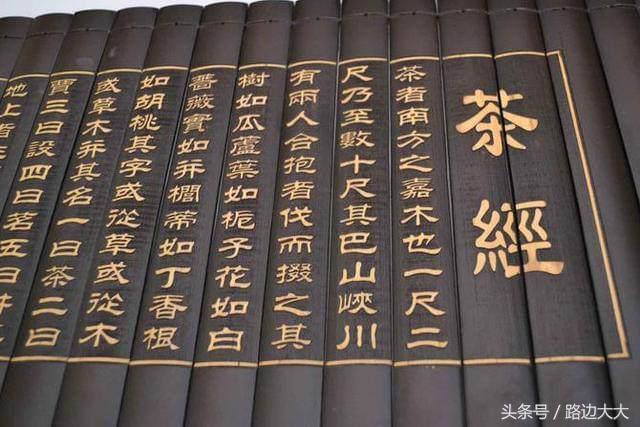 茶經
茶者南方之嘉木也一尺二
尺乃至數十尺其巴山峽川
有兩人合抱者伐而掇之其
樹如瓜蘆葉如栀子花如白
薔薇實如并櫚蒂如丁香根
如胡桃其字或從草或從木
或草木并其名一曰茶二曰
賈三曰設四曰茗五曰
地上者
头条号 / 路边大大